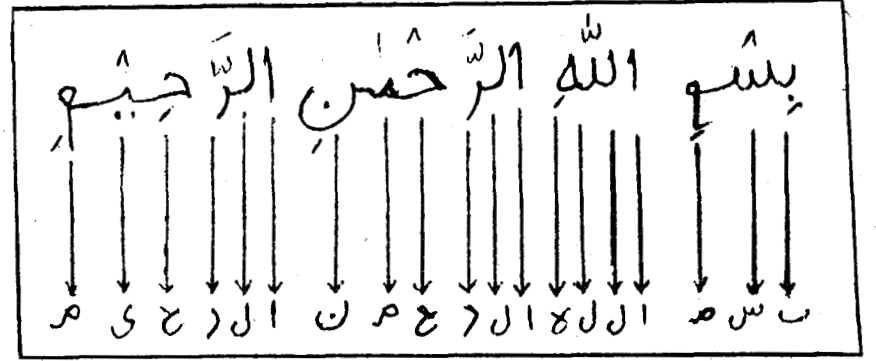 بِسْمِ اللّٰهِ الرَّحْمٰنِ الرَّحِيْمِ
ب س م ا ل ل ه ا ل ر ح م ن ا ل ر ح ي م